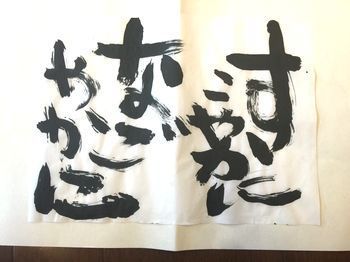 すこ
やかに
なご
やかに